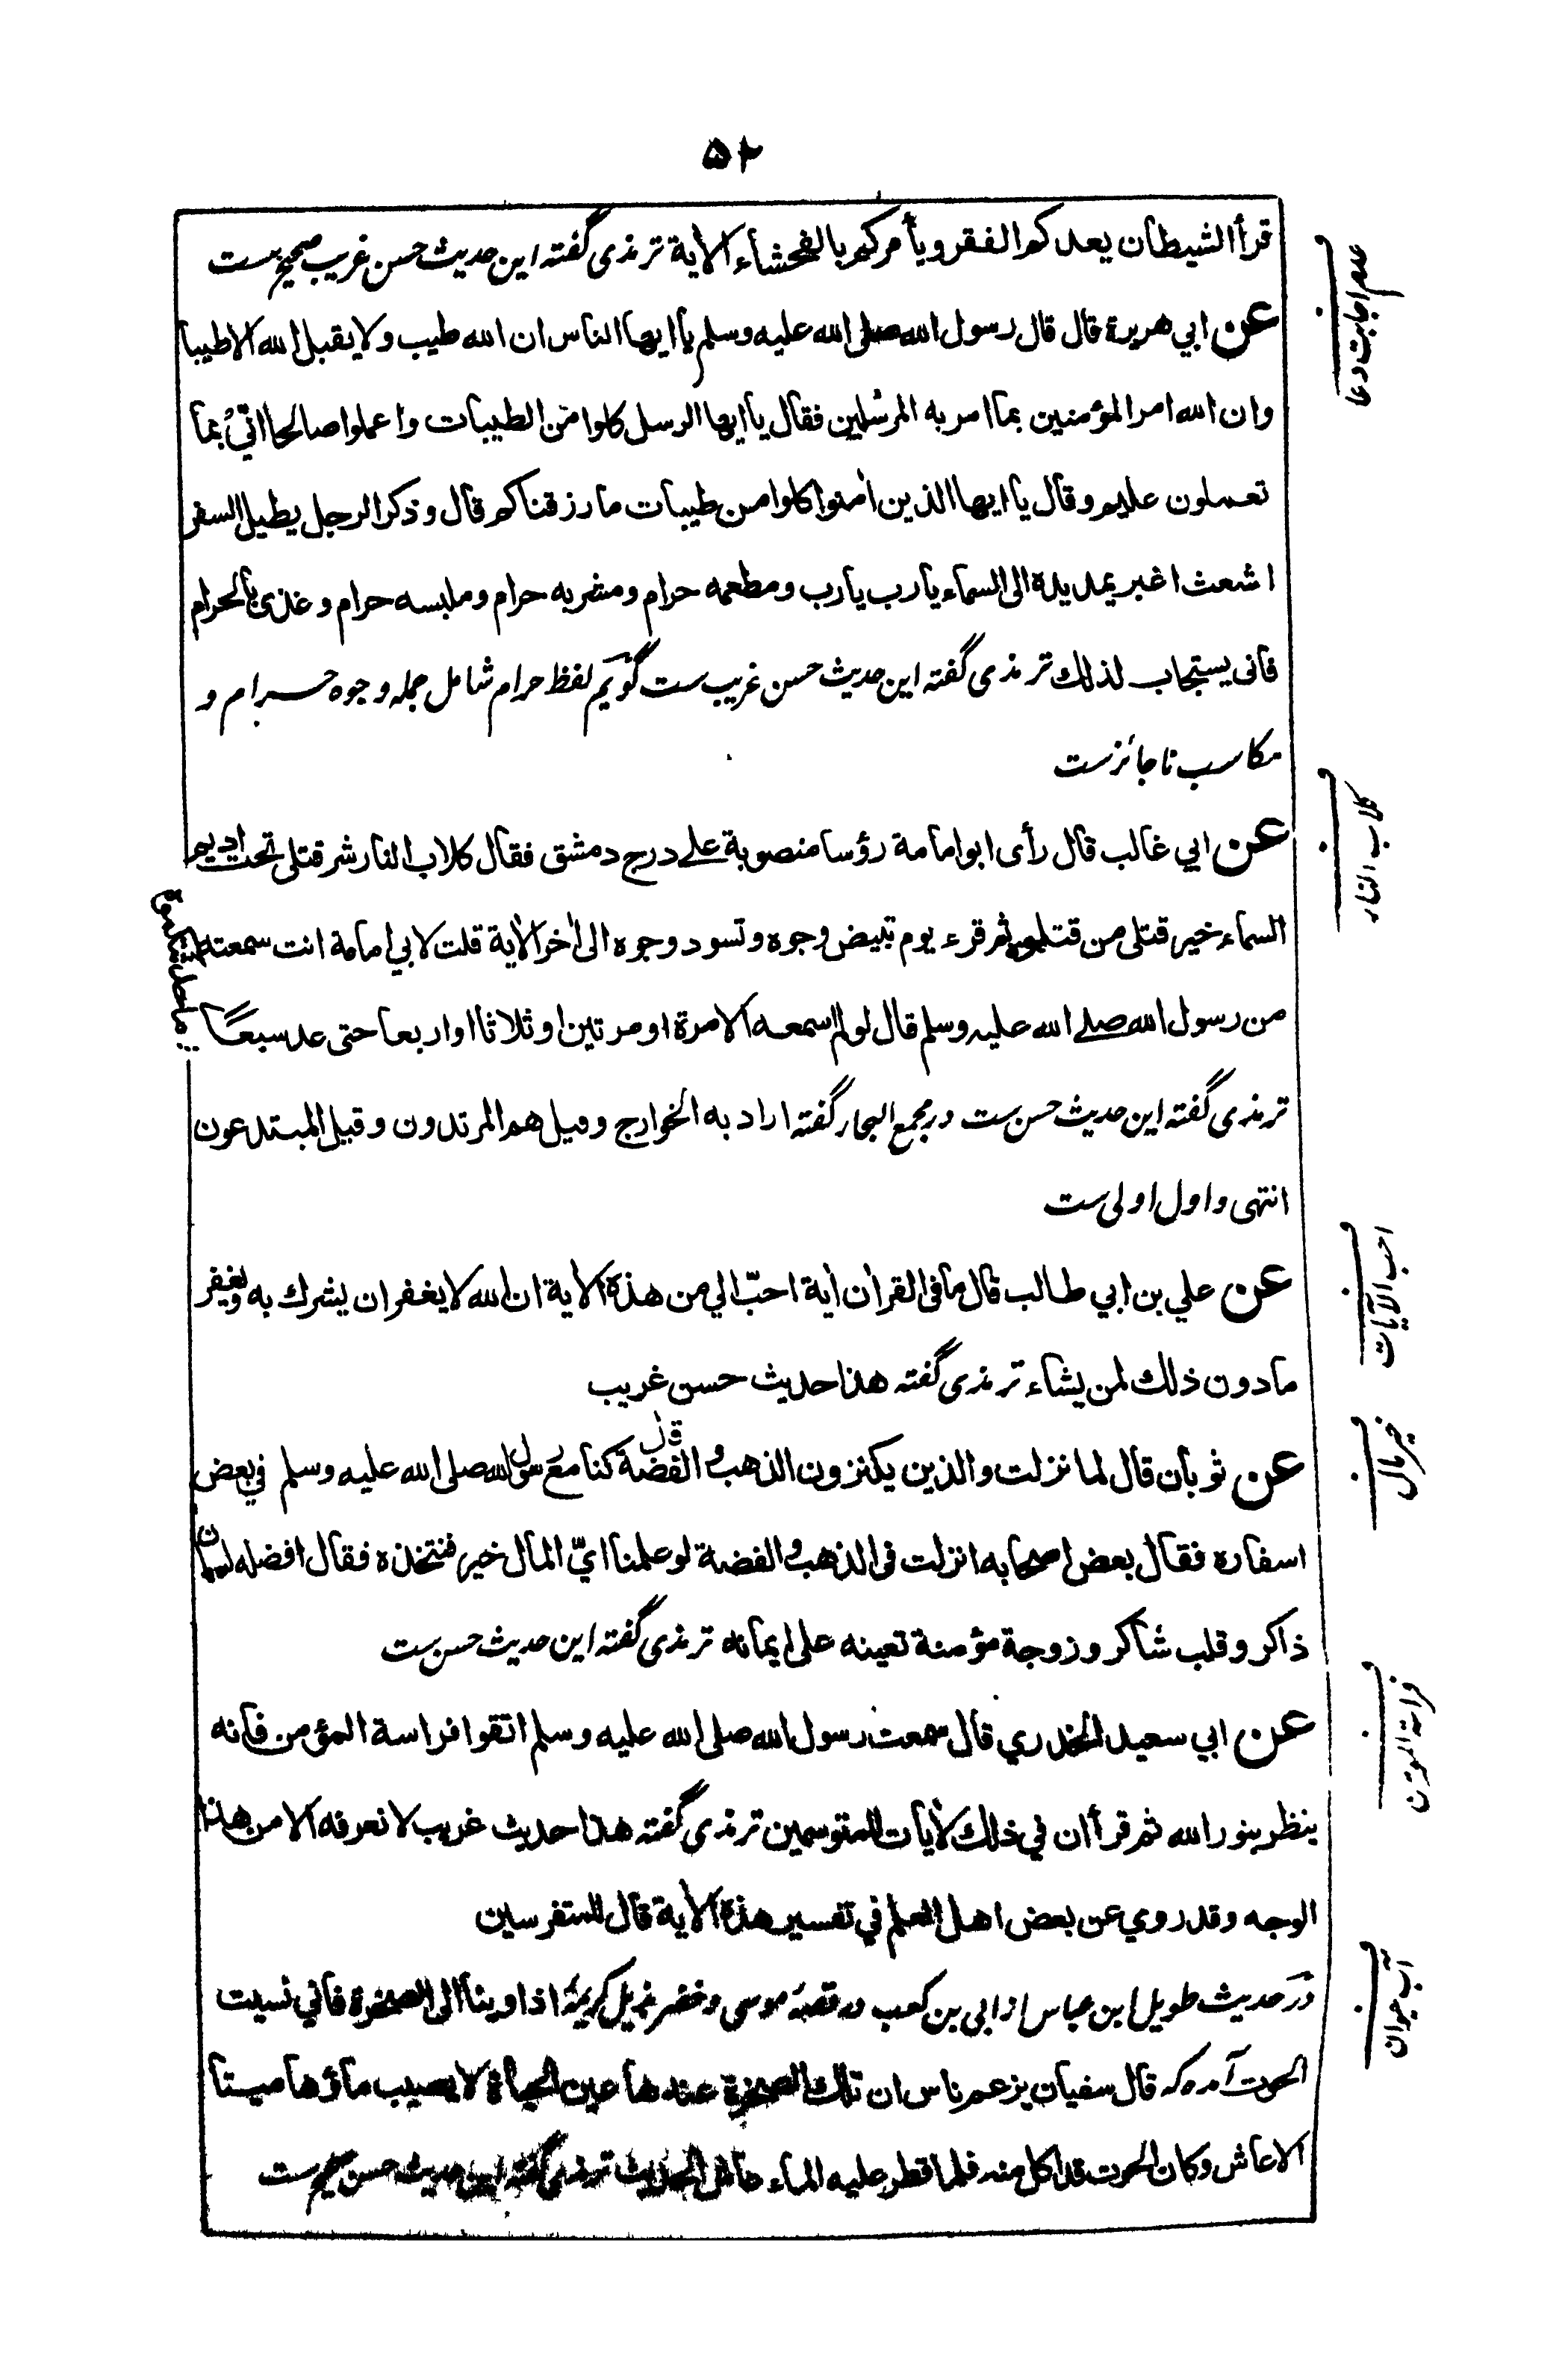 ۵۲
قرأ الشيطان يعدكم الفقر ويأمركم بالفحشاء الاية ترمذی گفته این حدیث حسن غریب صحیح ست
عن ابي هريرة قال قال رسول الله صلى الله عليه وسلم يا ايها الناس ان الله طيب ولا يقبل الله الا طيبا
وان الله امر المؤمنين بما امر به المرسلين فقال يا ايها الرسل كلوا من الطيبات واعملوا صالحا اني بما
تعملون عليم وقال يا ايها الذين اٰمنوا كلوا من طيبات ما رزقناكم قال وذكر الرجل يطيل السفر
اشعث اغبر يمد يده الى السماء يا رب يا رب ومطعمه حرام ومشربه حرام وملبسه حرام وغذى بالحرام
فانى يستجاب لذلك ترمذی گفته این حدیث حسن غریب ست گویم لفظ حرام شامل جمله وجوه حرام و
مکاسب ناجائزست
عن ابي غالب قال رأى ابوامامة رؤسا منصوبة على درج دمشق فقال كلاب النار شر قتلى تحت اديم
السماء خير قتلى من قتلوه ثم قرء يوم تبيض وجوه وتسود وجوه الى اٰخر الاٰية قلت لابي امامة انت سمعته
من رسول الله صلى الله عليه وسلم قال لو لم اسمعه الا مرة او مرتين او ثلاثا او اربعا حتى عد سبعا
ترمذی گفته این حدیث حسن ست در مجمع البحار گفته اراد به الخوارج وقيل هم المرتدون وقيل المبتدعون
انتهى واول اولی ست
عن علي بن ابي طالب قال ما فى القراٰن اٰية احبّ الي من هذه الاٰية ان الله لا يغفر ان يشرك به ويغفر
مادون ذلك لمن يشاء ترمذی گفته هذا حديث حسن غريب
عن ثوبان قال لما نزلت والذين يكنزون الذهب والفضة قال كنا مع رسول الله صلى الله عليه وسلم في بعض
اسفاره فقال بعض اصحابه انزلت فى الذهب والفضة لو علمنا ايّ المال خير فنتخذه فقال افضله لسان
ذاكر وقلب شاكر وزوجة مؤمنة تعينه على ايمانه ترمذی گفته این حدیث حسن ست
عن ابي سعيد الخدري قال سمعت رسول الله صلى الله عليه وسلم اتقوا فراسة المؤمن فانه
ينظر بنور الله ثم قرأ ان في ذلك لاٰيات للمتوسمين ترمذی گفته هذا حديث غريب لا نعرفه الا من هذا
الوجه وقد روي عن بعض اهل العلم في تفسير هذه الاٰية قال للمتفرسين
در حدیث طویل ابن عباس از ابی بن کعب در قصهٔ موسی و خضر بذیل کریمهٔ اذ اوينا الى الصخرة فاني نسيت
الحوت آمده که قال سفيان يزعم ناس ان تلك الصخرة عندها عين الحياة لا يصيب ماؤها ميتا
الا عاش وكان الحوت قد اكل منه فلما قطر عليه الماء عاش الحديث ترمذی گفته این حدیث حسن صحیح ست
عدم اجابت دعا
کلاب النار
احب الآیات
خیر مال
فراسة المؤمن
آب حیوان